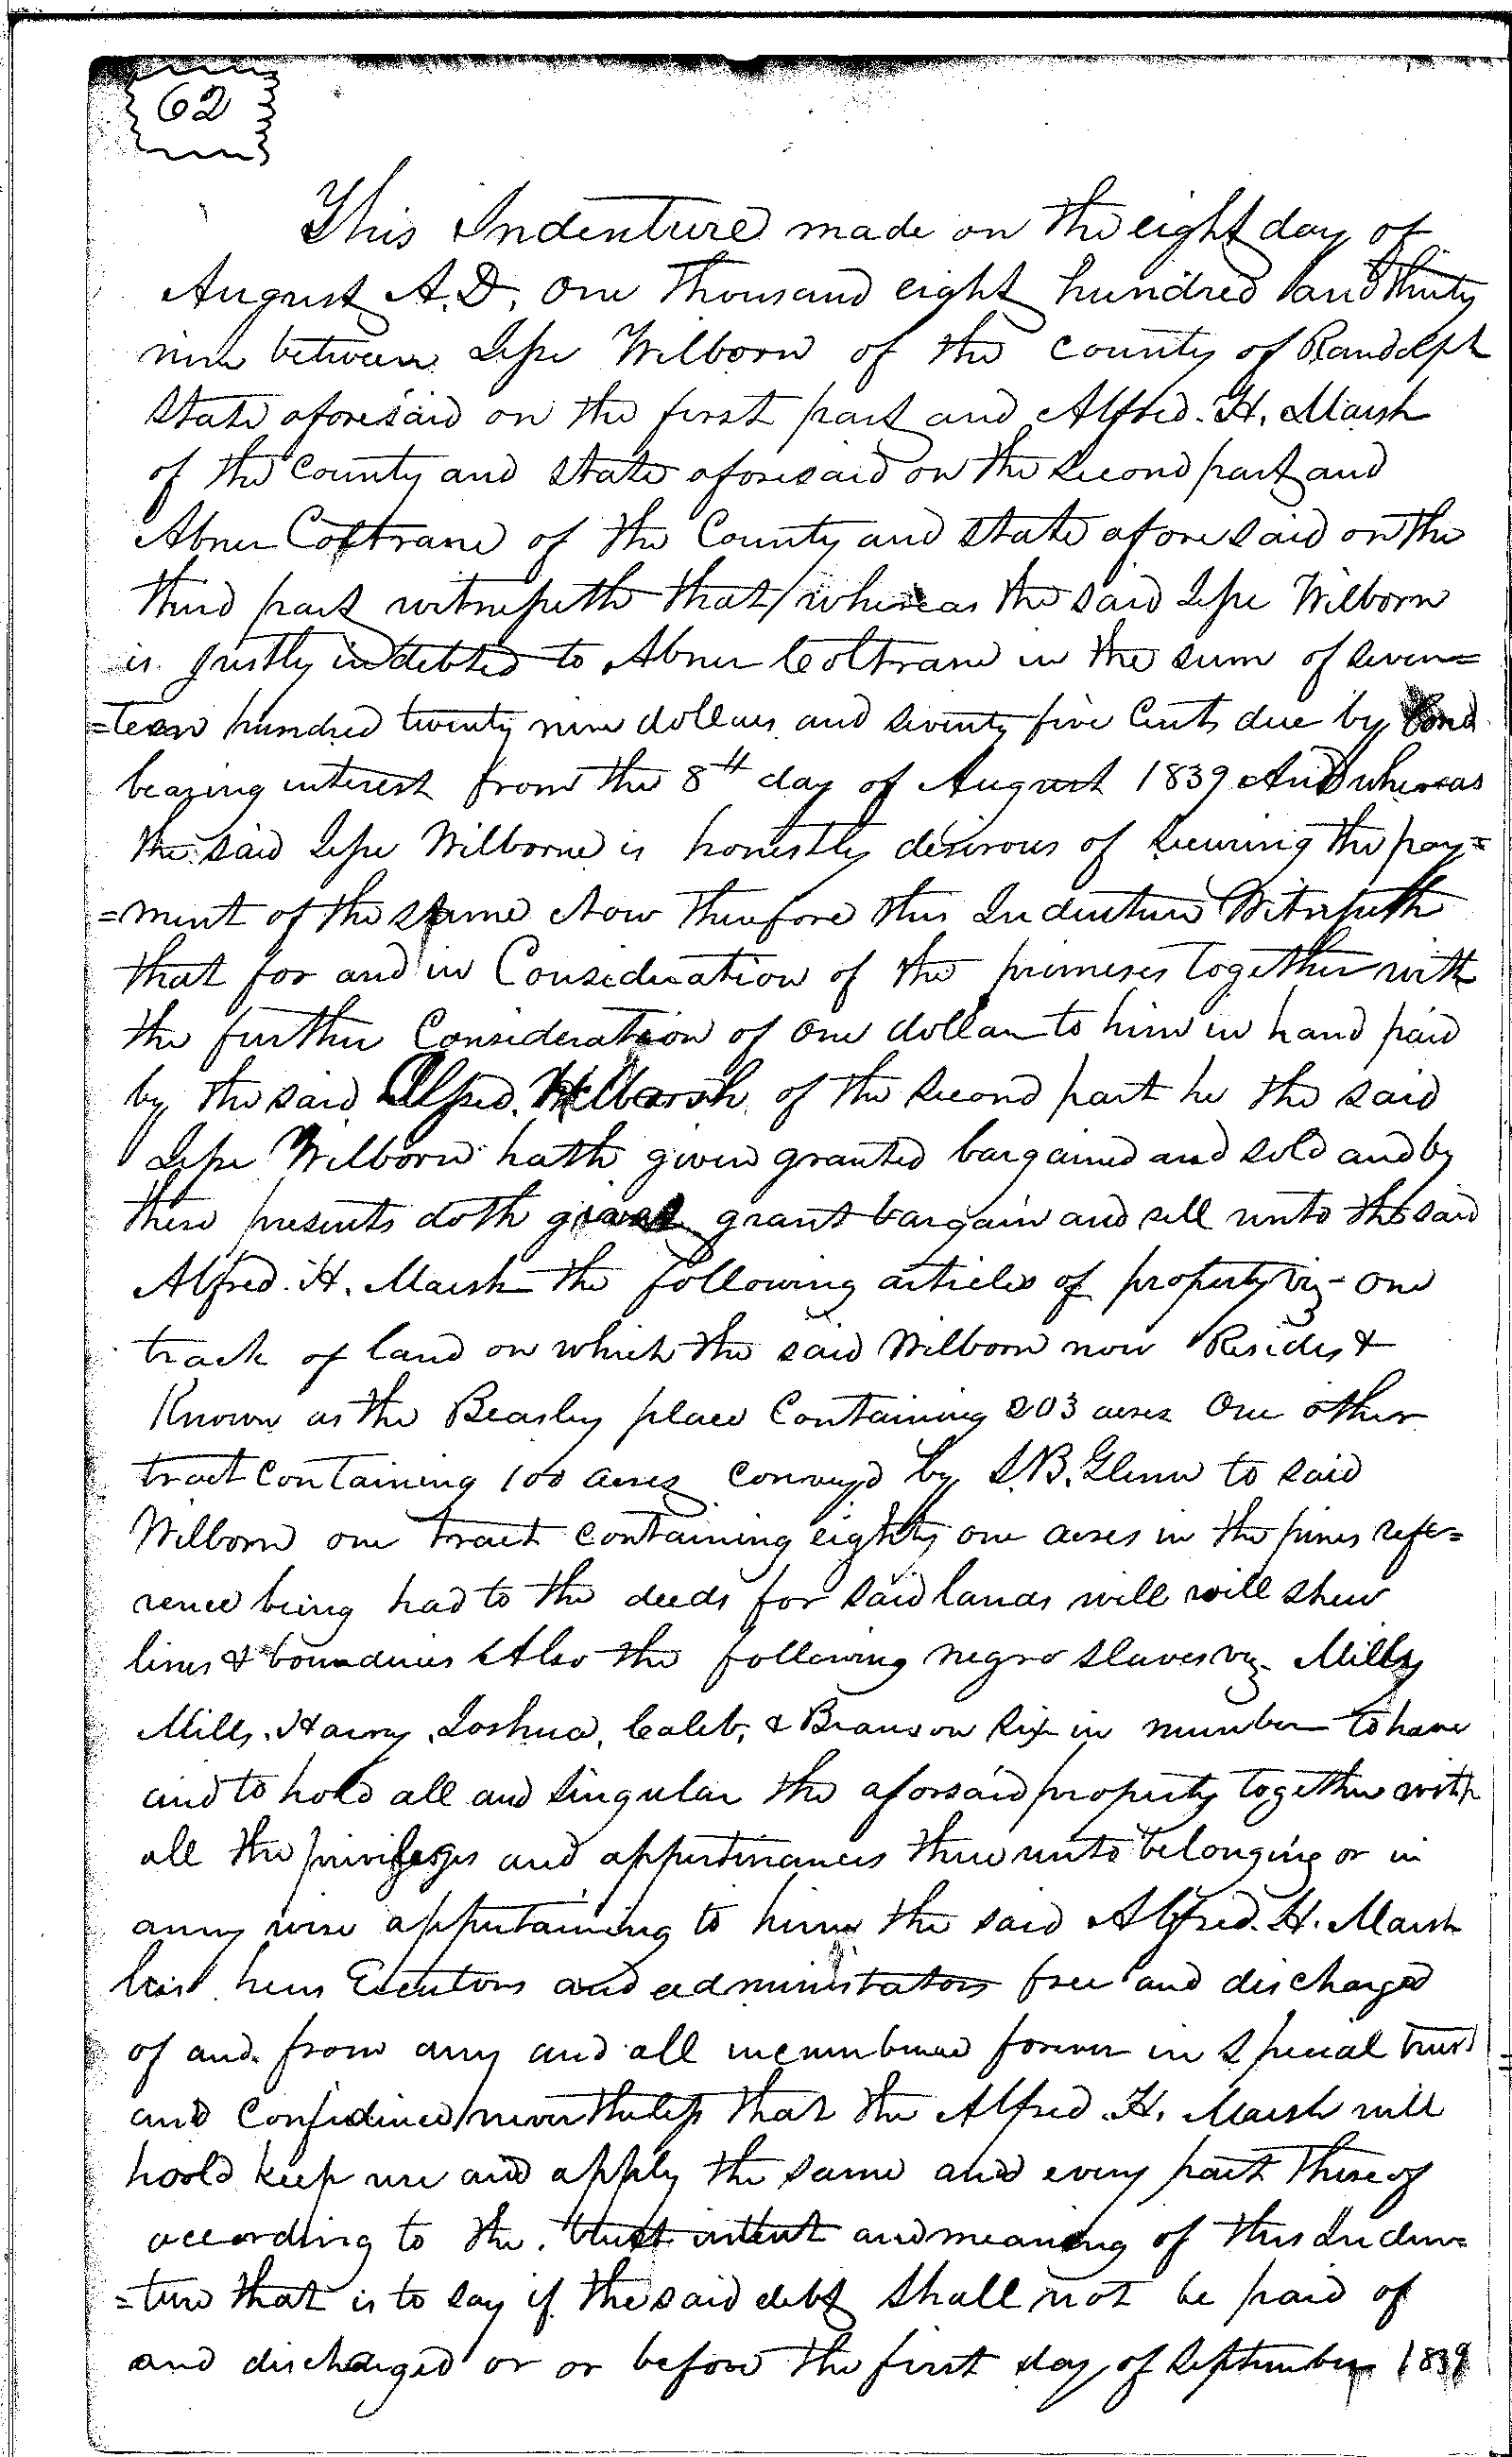 62
This Indenture made on the eight day of
August A.D. One Thousand eight hundred and thirty
nine between Jesse Welborn of the County of Randolph
State aforesaid on the first part and Alfred. H. Marsh
of the County and State aforesaid on the Second part and
Abner Coltrane of the County and State aforesaid on the
third part witnesseth that whereas the said Jesse Welborn
is justly indebted to Abner Coltrane in the sum of seven=
=teen hundred twenty nine dollars and seventy five Cents due by bond
bearing interest from the 8th day of August 1839 And whereas
the said Jesse Wilborne is honestly desirous of securing the pay=
=ment of the same Now therefore this Indenture Witnesseth
that for and in Consideration of the premises together with
the further Consideration of One dollar to him in hand paid
by the said Alfred. H Marsh of the second part he the said
Jesse Welborn hath given granted bargained and sold and by
these presents doth grant bargain and sell unto the said
Alfred. H. Marsh the following articles of property viz- one
track of land on which the said Welborn now Resides &
Known as the Beasley place Containing 203 acres One other
tract containing 100 acres conveyd by S.B. Glenn to said
Welborn one tract containing eighty one acres in the pines refe=
rence being had to the deeds for said lands will will shew
lines & boundries Also the following negro slaves viz- Milly
Mills. Harry, Joshua, Caleb, & Branson six in number to have
and to hold all and singular the aforsaid property together with
all the privileges and appertinances thereunto belonging or in
any wise appertaining to him the said Alfred. H. Marsh
his heirs Executors and administators free and discharged
of and from any and all incumbrance forever in special trust
and confidence nevertheless that the Alfred. H. Marsh will
hoold keep use and apply the same and every part thereof
according to the. trust intent and meaning of this Inden=
=ture that is to say if the said debt shall not be paid of
and discharged or or before the first day of September 1839